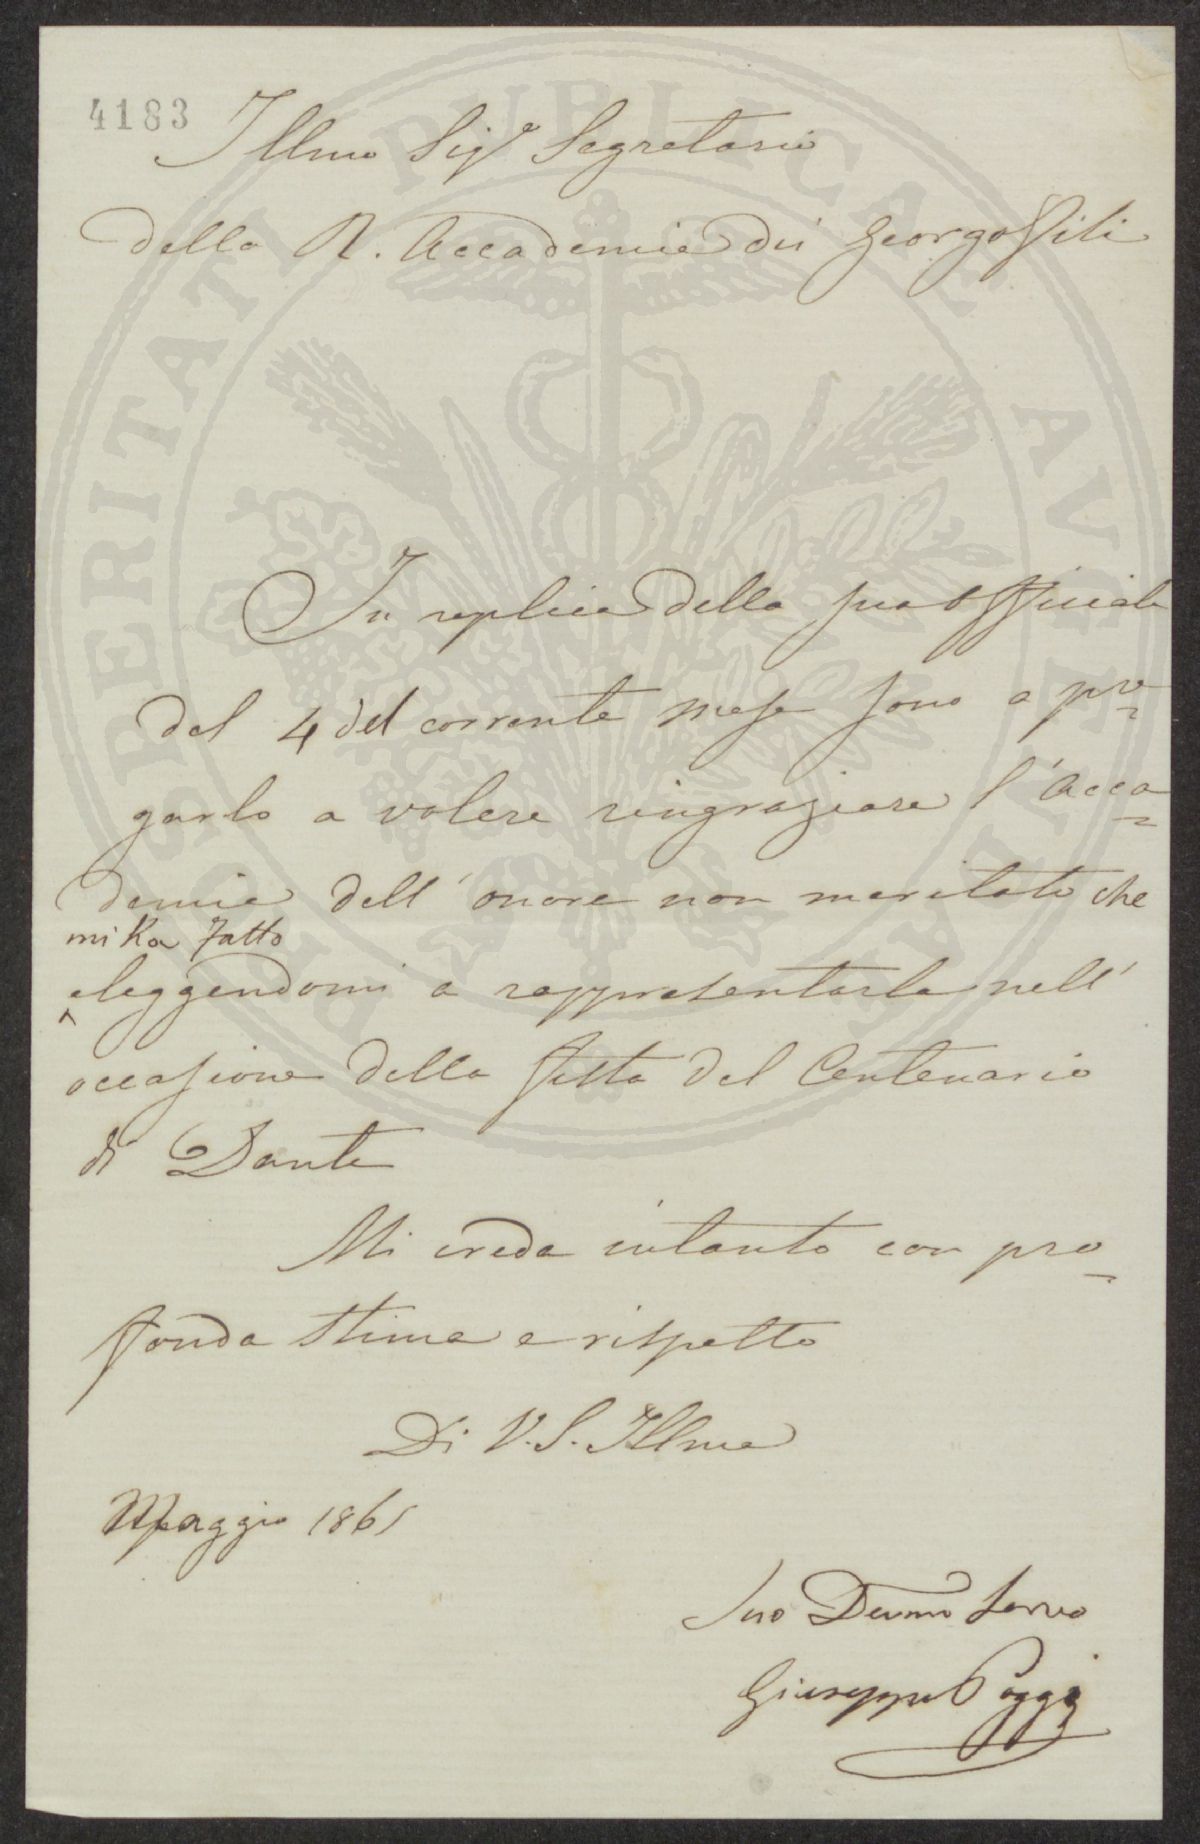 4183
Illmo Sigre Segretario
della R. Accademia dei Georgofili
In replica della sua officiale
del 4 del corrente mese sono a pre=
garlo a volere ringraziare l'Acca=
demia dell'onore non meritato che
mi ha fatto
eleggendomi a rappresentarla nell'
occasione della festa del Centenario
di Dante
Mi creda intanto con pro=
fonda stima e rispetto
Di V. S. Illma
Maggio 1865
Suo Devmo Servo
Giuseppe Poggi
PROSPERITATI PUBLICAE AUGENDAE